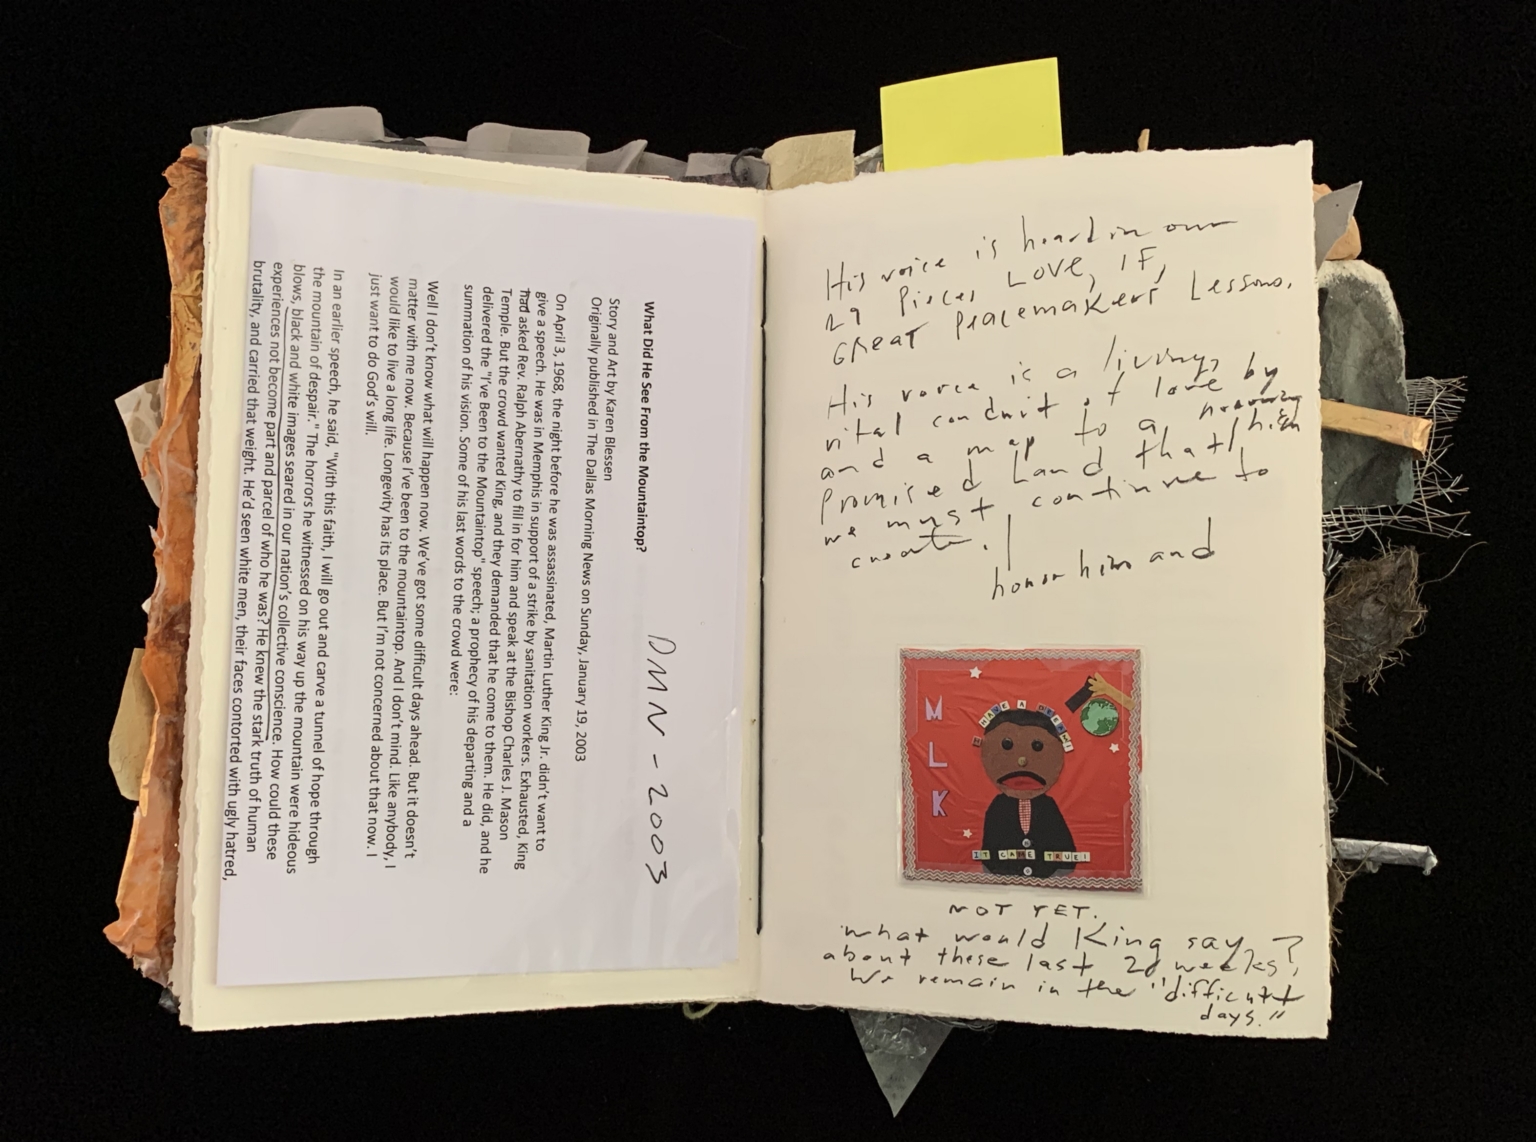 What Did He See From the Mountaintop?
DMN - 2003
Story and Art by Karen Blessen
Originally published in The Dallas Morning News on Sunday, January 19, 2003
On April 3, 1968, the night before he was assassinated, Martin Luther King Jr. didn't want to
give a speech. He was in Memphis in support of a strike by sanitation workers. Exhausted, King
had asked Rev. Ralph Abernathy to fill in for him and speak at the Bishop Charles J. Mason
Temple. But the crowd wanted King, and they demanded that he come to them. He did, and he
delivered the "I've Been to the Mountaintop" speech; a prophecy of his departing and a
summation of his vision. Some of his last words to the crowd were:
Well I don't know what will happen now. We've got some difficult days ahead. But it doesn't
matter with me now. Because I've been to the mountaintop. And I don't mind. Like anybody, I
would like to live a long life. Longevity has its place. But I'm not concerned about that now. I
just want to do God's will.
In an earlier speech, he said, "With this faith, I will go out and carve a tunnel of hope through
the mountain of despair." The horrors he witnessed on his way up the mountain were hideous
blows, black and white images seared in our nation's collective conscience. How could these
experiences not become part and parcel of who he was? He knew the stark truth of human
brutality, and carried that weight. He'd seen white men, their faces contorted with ugly hatred,
His voice is heard in our
29 Pieces LOVE, IF,
GREAT PEACEMAKERS Lessons.
His voice is a living,
vital conduit of love by
and a map to a
Promised Land that
we must continue to
create.
honor him and
MLK
I HAVE A DREAM!
IT CAME TRUE!
NOT YET.
What would King say
about these last 2 weeks?
We remain in the "difficult
days."